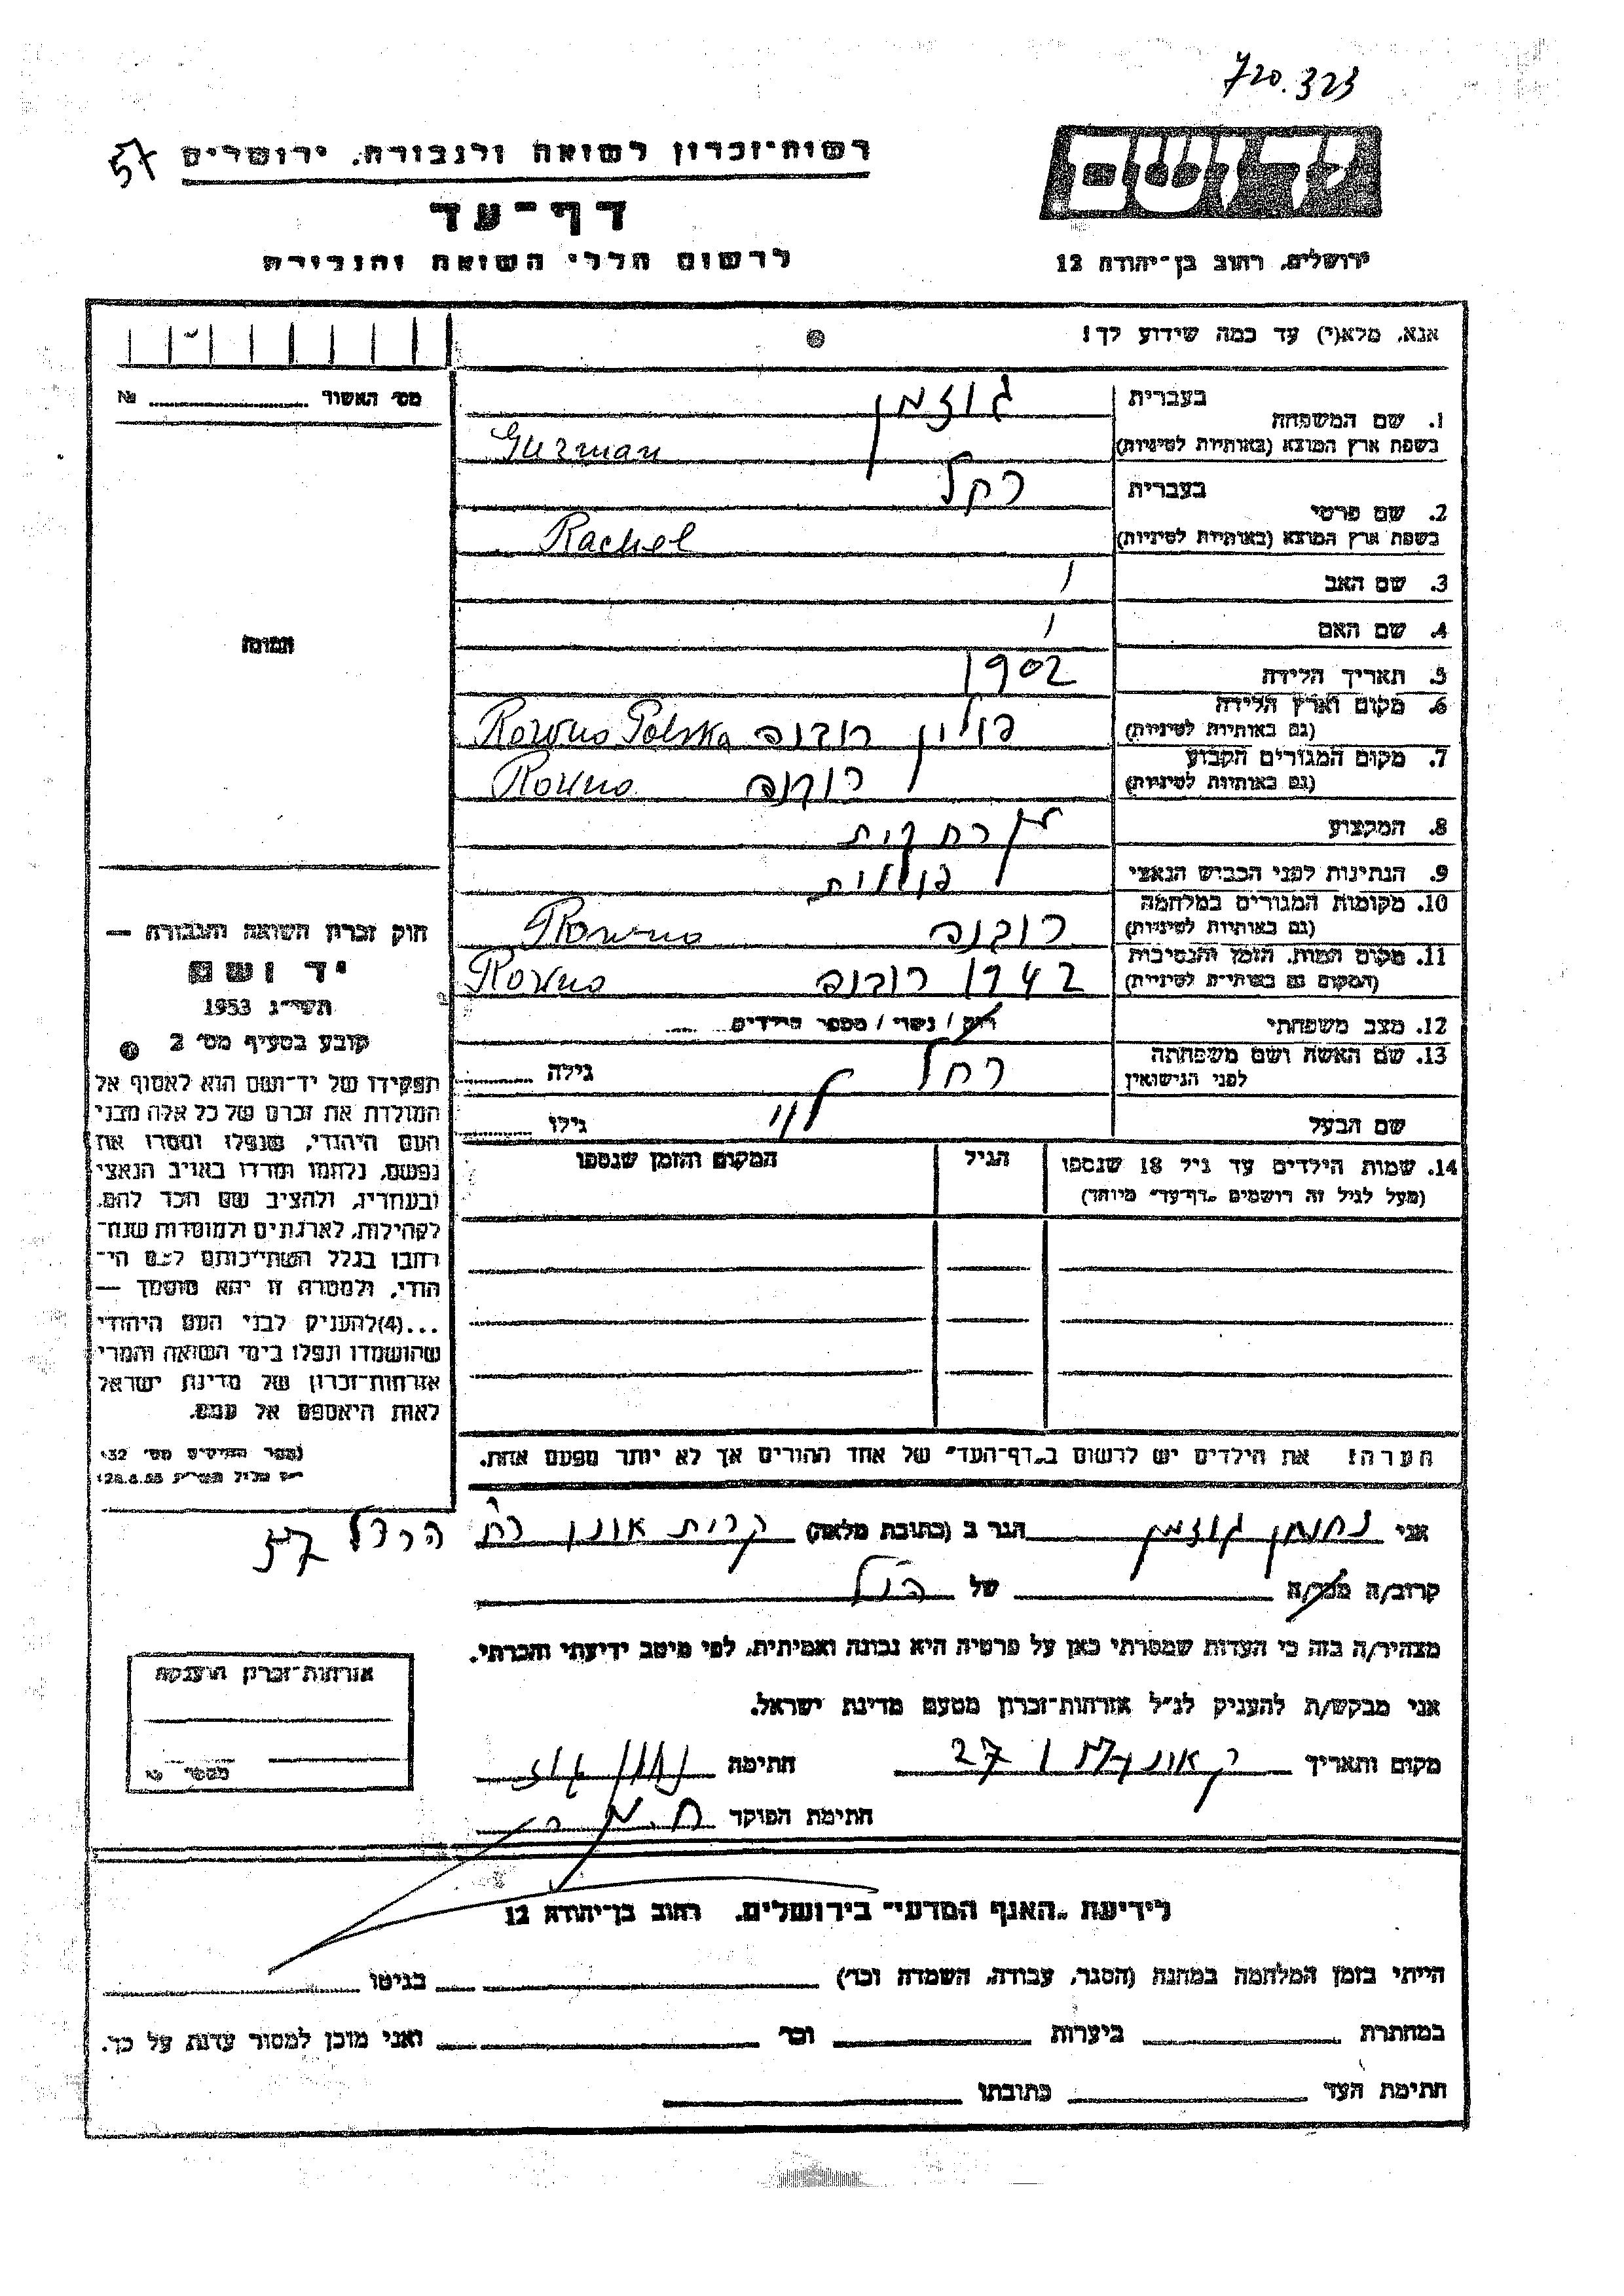 720.323
57
רשות-זכרון לשואה ולגבורה, ירושלים
יד ושם
דף-עד
לרשום חללי השואה והגבורה
ירושלים, רחוב בן-יהודה 12
אנא, מלא(י) עד כמה שידוע לך!
מס' האשור № 
1. שם המשפחה
בעברית גוזמן
בשפת ארץ המוצא (באותיות לטיניות) Guzman
2. שם פרטי
בעברית רקל
בשפת ארץ המוצא (באותיות לטיניות) Rachel
3. שם האב
4. שם האם
תמונה
5. תאריך הלידה 1902
6. מקום וארץ הלידה
(גם באותיות לטיניות) פולין רובנה Rowno Polska
7. מקום המגורים הקבוע
(גם באותיות לטיניות) רובנה Rowno
8. המקצוע
9. הנתינות לפני הכבוש הנאצי פולנית
10. מקומות המגורים במלחמה
(גם באותיות לטיניות) רובנה Rowno
11. מקום המות, הזמן והנסיבות
(המקום גם באותיות לטיניות) 1942 רובנה Rowno
12. מצב משפחתי רווק / נשוי / מספר הילדים
13. שם האשה ושם משפחתה
לפני הנישואין רחל גילה
שם הבעל גילו
14. שמות הילדים עד גיל 18 שנספו הגיל המקום והזמן שנספו
(מעל לגיל זה רושמים "דף-עד" מיוחד)
חוק זכרון השואה והגבורה —
יד ושם
תשי"ג 1953
קובע בסעיף מס' 2
תפקידו של יד-ושם הוא לאסוף אל
המולדת את זכרם של כל אלה מבני
העם היהודי, שנפלו ומסרו את
נפשם, נלחמו ומרדו באויב הנאצי
ובעוזריו, ולהציב שם וזכר להם,
לקהילות, לארגונים ולמוסדות שנח-
רחבו בגלל השתייכותם לעם הי-
הודי, ולמטרה זו יהא מוסמך —
...(4) להעניק לבני העם היהודי
שהושמדו ונפלו בימי השואה והמרי
אזרחות-זכרון של מדינת ישראל
לאות היאספם אל עמם.
הערה: את הילדים יש לרשום ב"דף-העד" של אחד ההורים אך לא יותר מפעם אחת.
אני נחמן גוזמן הגר ב (כתובת מלאה) קרית אונו רח' הרצל 57
קרוב/ה מכר/ה של
מצהיר/ה בזה כי העדות שמסרתי כאן על פרטיה היא נכונה ואמיתית, לפי מיטב ידיעתי והכרתי.
אני מבקש/ת להעניק לנ"ל אזרחות-זכרון מטעם מדינת ישראל.
אזרחות-זכרון הוענקה
מקום ותאריך חתימה
חתימת הפוקד
לידיעת "האגף המדעי" בירושלים, רחוב בן-יהודה 12
הייתי בזמן המלחמה במחנה (הסגר, עבודה, השמדה וכד') בגיטו
במחתרת ביערות וכד' ואני מוכן למסור עדות על כך.
חתימת העד כתובתו